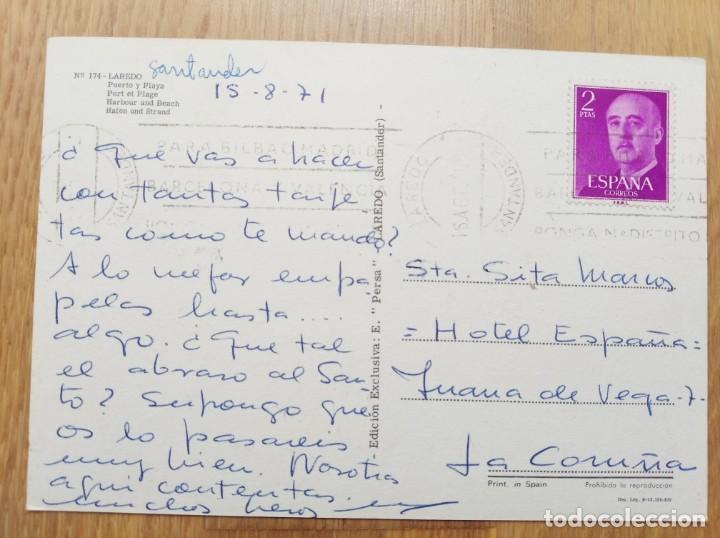 Nº 174 - LAREDO
Puerto y Playa
Port et Plage
Harbour and Beach
Hafen und Strand
Santander
15-8-71
¿Que vas a hacer
con tantas tarje
tas como te mando?
A lo mejor empa
pelas hasta....
algo. ¿Que tal
el abrazo al San
to? Supongo que
os lo pasareis
muy bien. Nosotras
aqui contentas.
muchos besos
Edición Exclusiva: E. "Persa" - LAREDO (Santander) -
PARA BILBAO MADRID
BARCELONA VALENCIA
LAREDO
SANTANDER
PONGA Nº DISTRITO
2
PTAS
ESPAÑA
CORREOS
Sta. Sita Marcos
= Hotel España =
Juana de Vega - 7.
La Coruña
Print. in Spain
Prohibida la reproducción
todocoleccion
todocoleccion.net